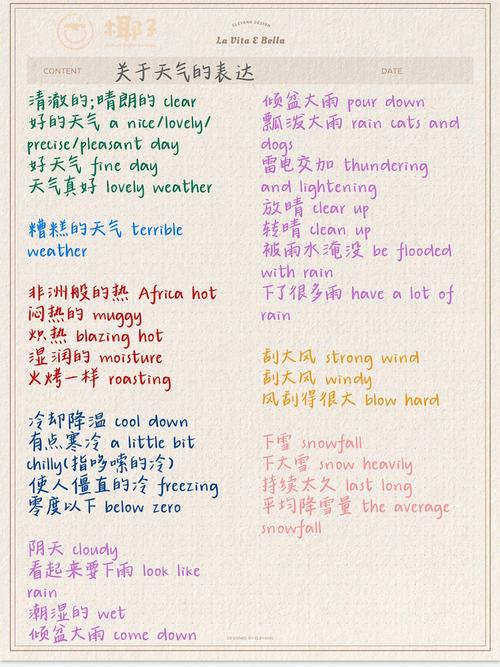 椰子
ELEYANG DESIGN
La Vita È Bella
CONTENT
关于天气的表达
DATE
清澈的;晴朗的 clear
好的天气 a nice/lovely/
precise/pleasant day
好天气 fine day
天气真好 lovely weather
糟糕的天气 terrible
weather
非洲般的热 Africa hot
闷热的 muggy
炽热 blazing hot
湿润的 moisture
火烤一样 roasting
冷却降温 cool down
有点寒冷 a little bit
chilly(指哆嗦的冷)
使人僵直的冷 freezing
零度以下 below zero
阴天 cloudy
看起来要下雨 look like
rain
潮湿的 wet
倾盆大雨 come down
倾盆大雨 pour down
瓢泼大雨 rain cats and
dogs
雷电交加 thundering
and lightening
放晴 clear up
转晴 clean up
被雨水淹没 be flooded
with rain
下了很多雨 have a lot of
rain
刮大风 strong wind
刮大风 windy
风刮得很大 blow hard
下雪 snowfall
下大雪 snow heavily
持续太久 last long
平均降雪量 the average
snowfall
DESIGNED BY ELEYANG